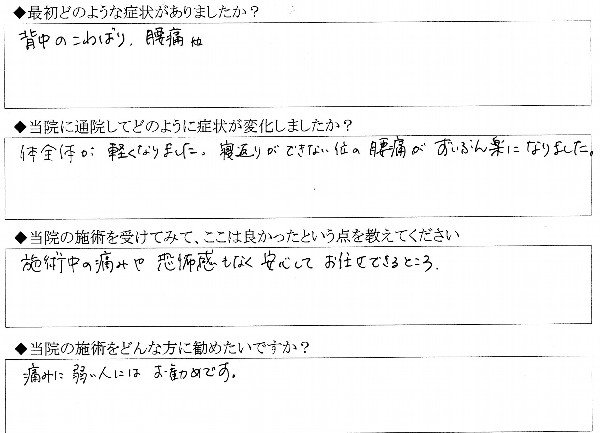 ◆最初どのような症状がありましたか？
背中のこわばり、腰痛 他
◆当院に通院してどのように症状が変化しましたか？
体全体が 軽くなりました。寝返りができない位の腰痛が ずいぶん楽になりました。
◆当院の施術を受けてみて、ここは良かったという点を教えてください
施術中の痛みや 恐怖感もなく 安心して お任せできるところ。
◆当院の施術をどんな方に勧めたいですか？
痛みに 弱い人には お勧めです。